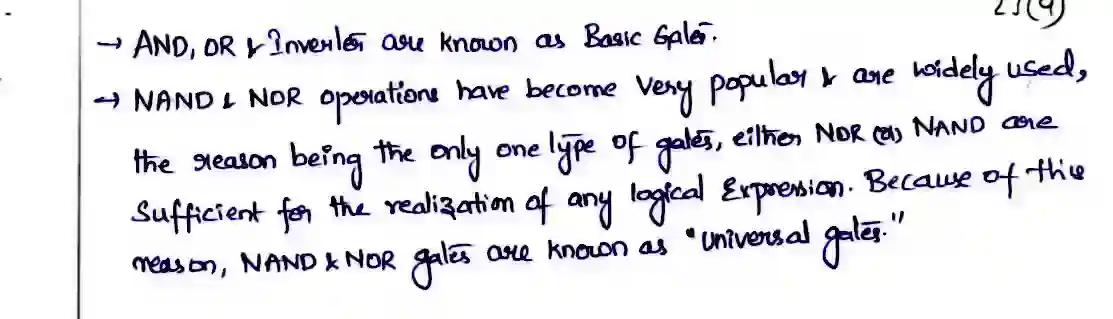 → AND, OR & Inverter are known as Basic Gates.
→ NAND & NOR operations have become Very popular & are widely used,
the reason being the only one type of gates, either NOR (or) NAND are
Sufficient for the realization of any logical Expression. Because of this
reason, NAND & NOR gates are known as "universal gates."